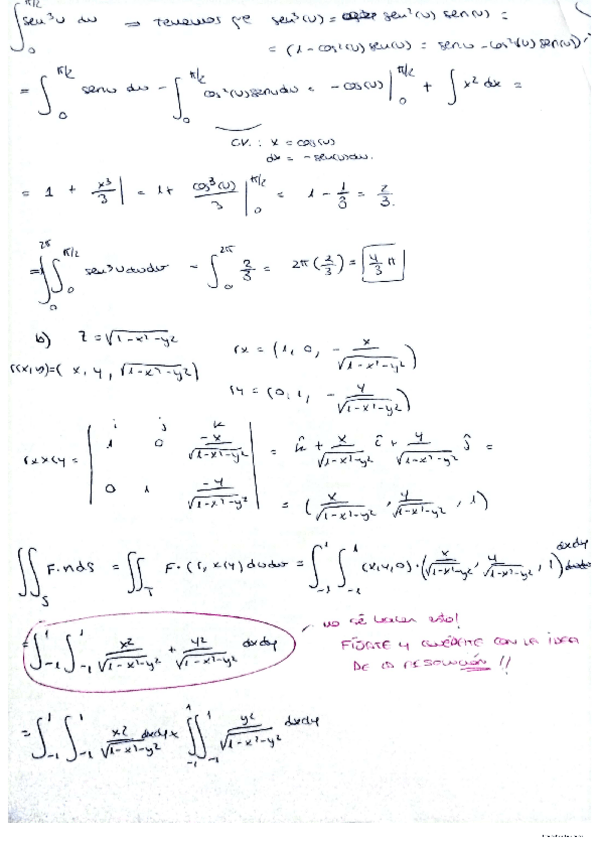 ∫₀^{π/2} sen³u du ⇒ tenemos qe sen³(u) = sen²(u) sen(u) =
= (1 - cos²(u) sen(u) = senu - cos²(u) sen(u))
= ∫₀^{π/2} senu du - ∫₀^{π/2} cos²(u) senu du = -cos(u) |₀^{π/2} + ∫ x² dx =
C.V.: x = cos(u)
dx = -sen(u) du.
= 1 + x³/3 | = 1 + cos³(u)/3 |₀^{π/2} = 1 - 1/3 = 2/3.
= ∫₀^{2π} ∫₀^{π/2} sen³u du dv = ∫₀^{2π} 2/3 = 2π(2/3) = 4/3 π
b) z = √(1-x²-y²)
r(x,y) = (x, y, √(1-x²-y²))
rx = (1, 0, - x/√(1-x²-y²))
ry = (0, 1, - y/√(1-x²-y²))
rx × ry = | i j k |
| 1 0 -x/√(1-x²-y²) |
| 0 1 -y/√(1-x²-y²) |
= k̂ + x/√(1-x²-y²) î + y/√(1-x²-y²) ĵ =
= (x/√(1-x²-y²), y/√(1-x²-y²), 1)
∬_S F·n dS = ∬_T F·(rxxry) du dv = ∫₋₁¹ ∫₋₁¹ (x,y,0)·(x/√(1-x²-y²), y/√(1-x²-y²), 1) dxdy
= ∫₋₁¹ ∫₋₁¹ x²/√(1-x²-y²) + y²/√(1-x²-y²) dxdy
no sé hacer esto!
FÍJATE Y QUÉDATE CON LA IDEA
DE LA RESOLUCIÓN!!
= ∫₋₁¹ ∫₋₁¹ x²/√(1-x²-y²) dxdy ∫₋₁¹ ∫₋₁¹ y²/√(1-x²-y²) dxdy